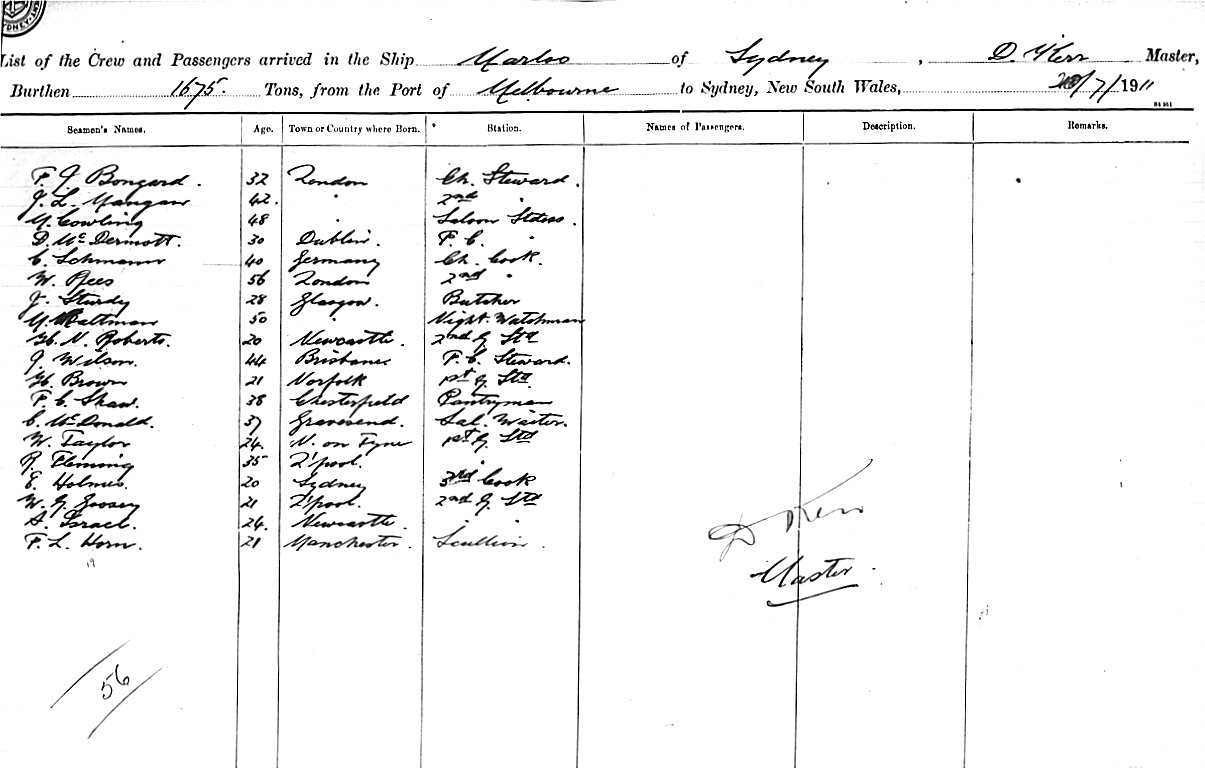 List of the Crew and Passengers arrived in the Ship Marloo of Sydney, D. Kerr Master,
Burthen 1675 Tons, from the Port of Melbourne to Sydney, New South Wales, /7/1911
Seamen's Names. Age. Town or Country where Born. Station. Names of Passengers. Description. Remarks.
F. J. Bongard. 32 London Ch. Steward.
J. L. Mangan 42. " 2nd "
M. Cowling 48 " Saloon Stdess.
D. McDermott. 30 Dublin. F. C.
C. Schmann 40 Germany Ch. Cook.
W. Rees 56 London 2nd "
J. Sturdy 28 Glasgow. Butcher
50 " Night. Watchman
H. N. Roberts. 20 Newcastle. 2nd G. Std
J. Wilson. 44 Brisbane F. C. Steward.
H. Brown 21 Norfolk 1st G. Std
F. C. Shaw. 38 Chesterfield Pantryman
C. McDonald. 37 Gravesend. Sal. Waiter.
W. Taylor 24 N. on Tyne 1st G. Std
R. Fleming 35 L'pool. "
E. Holmes. 20 Sydney 3rd Cook
W. G. Goosey 21 L'pool. 2nd G. Std
A. Israel. 24. Newcastle. "
F. L. Horn. 21 Manchester. Scullion.
19
D Kerr
Master.
56